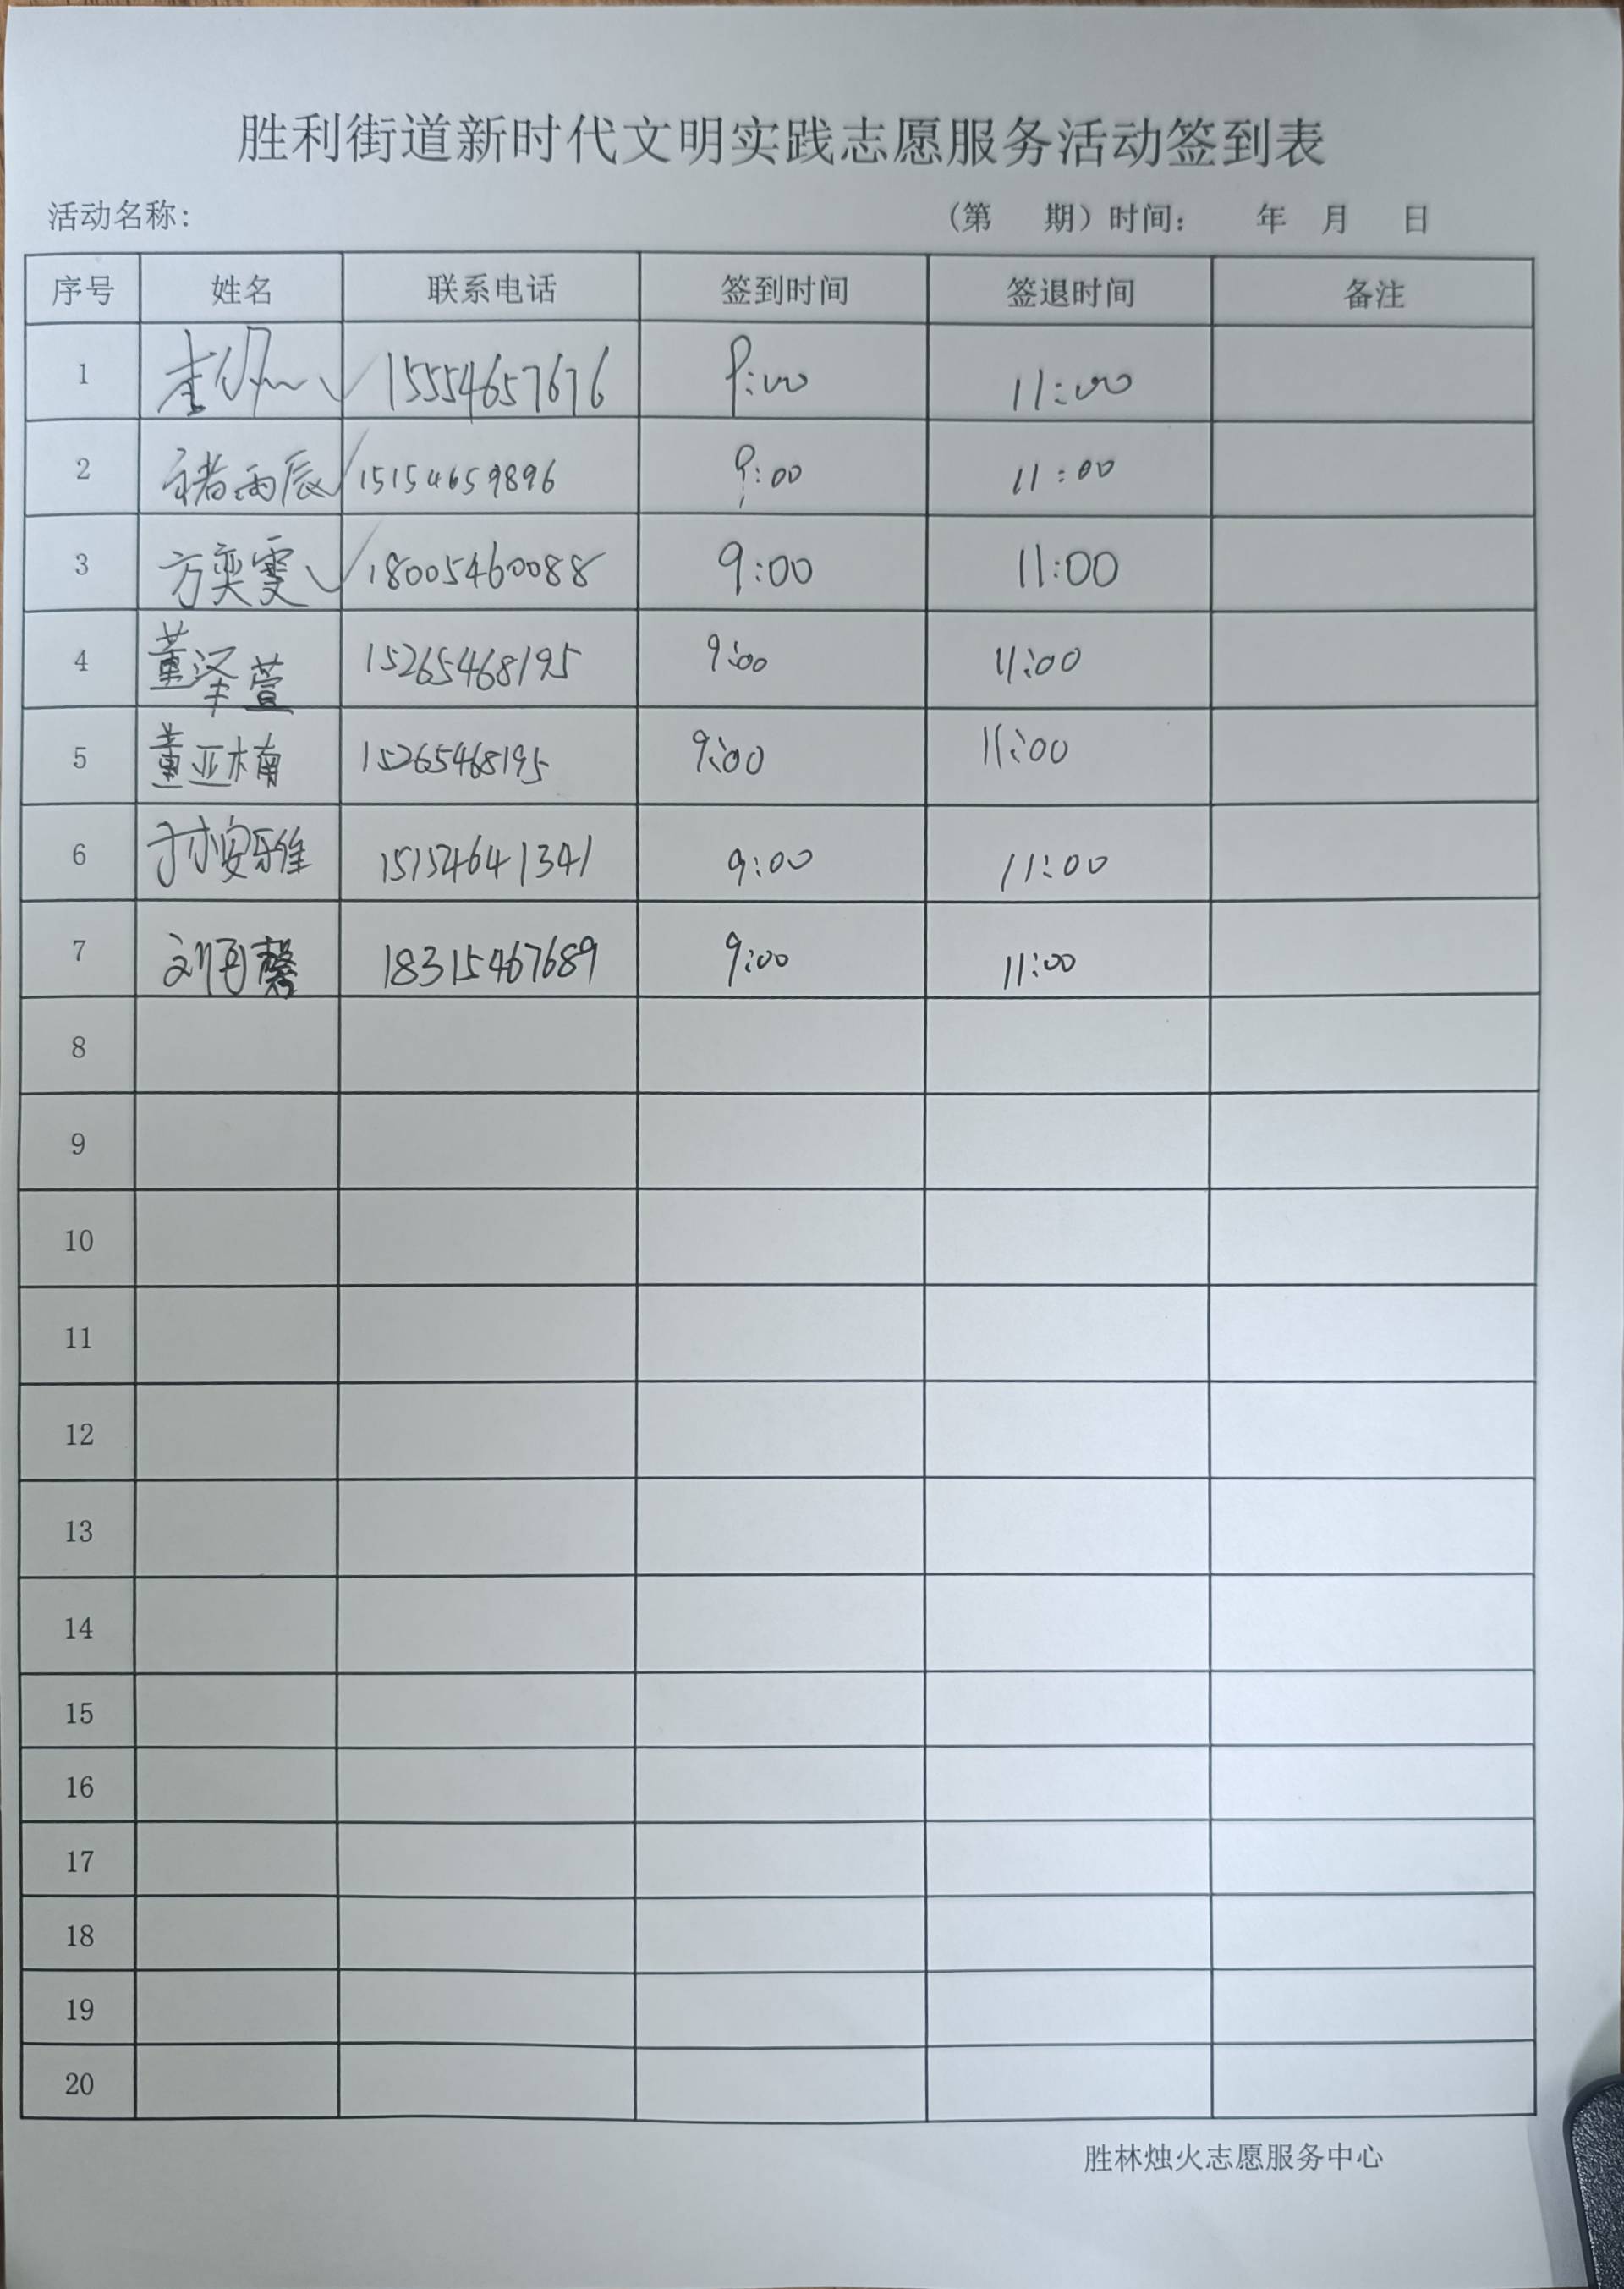 胜利街道新时代文明实践志愿服务活动签到表
活动名称: (第 期) 时间: 年 月 日
序号 姓名 联系电话 签到时间 签退时间 备注
1 15554657676 9:00 11:00
2 褚雨辰 15154659896 9:00 11:00
3 方奕雯 18005460088 9:00 11:00
4 董泽萱 15265468195 9:00 11:00
5 董亚楠 15265468195 9:00 11:00
6 15154641341 9:00 11:00
7 18315467689 9:00 11:00
8
9
10
11
12
13
14
15
16
17
18
19
20
胜林烛火志愿服务中心